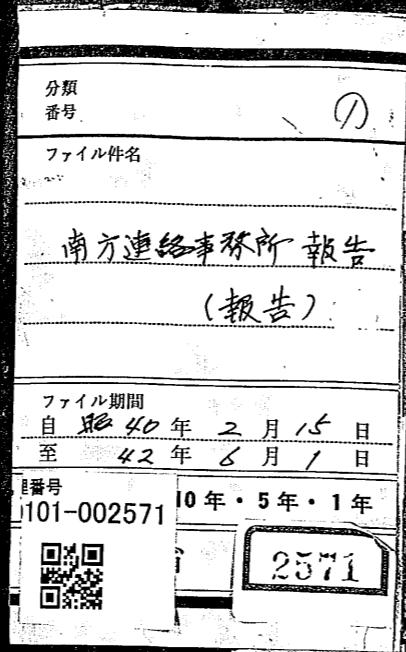 分類
番号
①
ファイル件名
南方連絡事務所 報告
(報告)
ファイル期間
自 昭 40 年 2 月 15 日
至 42 年 6 月 1 日
理番号
101-002571
10 年・5 年・1 年
2571